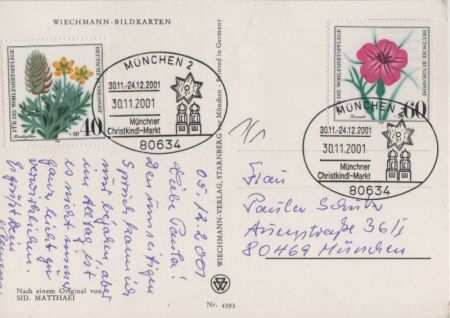 WIECHMANN-BILDKARTEN
FÜR DIE WOHLFAHRTSPFLEGE
DEUTSCHE BUNDESPOST
40
MÜNCHEN 2
30.11.-24.12.2001
30.11.2001
Münchner
Christkindl-Markt
80634
FÜR DIE WOHLFAHRTSPFLEGE
DEUTSCHE BUNDESPOST
60
MÜNCHEN 2
30.11.-24.12.2001
30.11.2001
Münchner
Christkindl-Markt
80634
WIECHMANN-VERLAG, STARNBERG bei München - Printed in Germany
05.12.2001
Liebe Paula!
Den umseitigen
Spruch kann ich
nur bejahen aber
im Alltag ist
es nicht immer
ganz leicht zu
verwirklichen.
Es grüßt Dein
1/1
Frau
80469 München
Nach einem Original von
SID. MATTHAEI
Nr. 4393